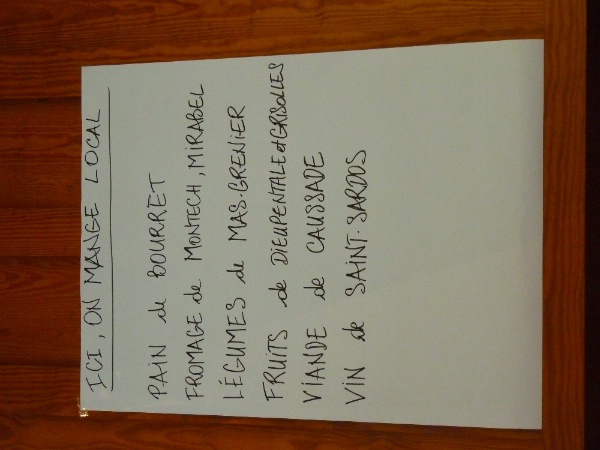 ICI, ON MANGE LOCAL
PAIN de BOURRET
FROMAGE de MONTECH, MIRABEL
LÉGUMES de MAS-GRENIER
FRUITS de DIEUPENTALE et GRISOLLES
VIANDE de CAUSSADE
VIN de SAINT-SARDOS